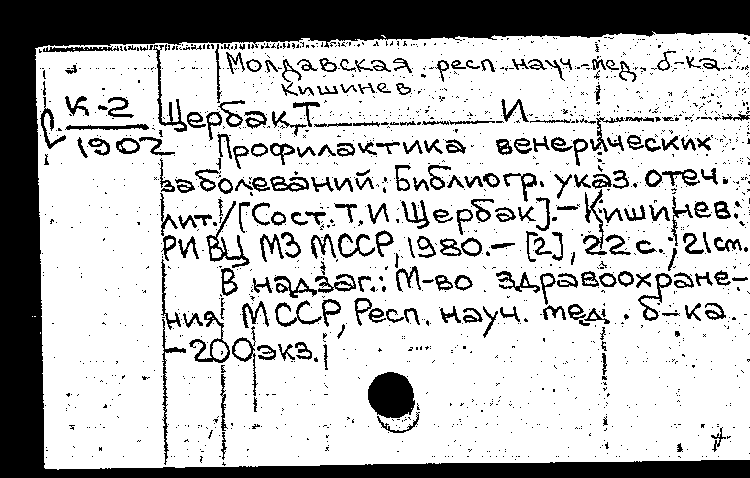 Молдавская респ. науч.-мед. б-ка
Кишинев.
К-2
1902
Щербак, Т И
Профилактика венерических
заболеваний: Библиогр. указ. отеч.
лит. / [Сост. Т.И. Щербак]. – Кишинев:
РИ ВЦ МЗ МССР, 1980. – [2], 22 с.; 21 cm.
В надзаг.: М-во здравоохране-
ния МССР, Респ. науч. мед. б-ка.
– 200 экз.